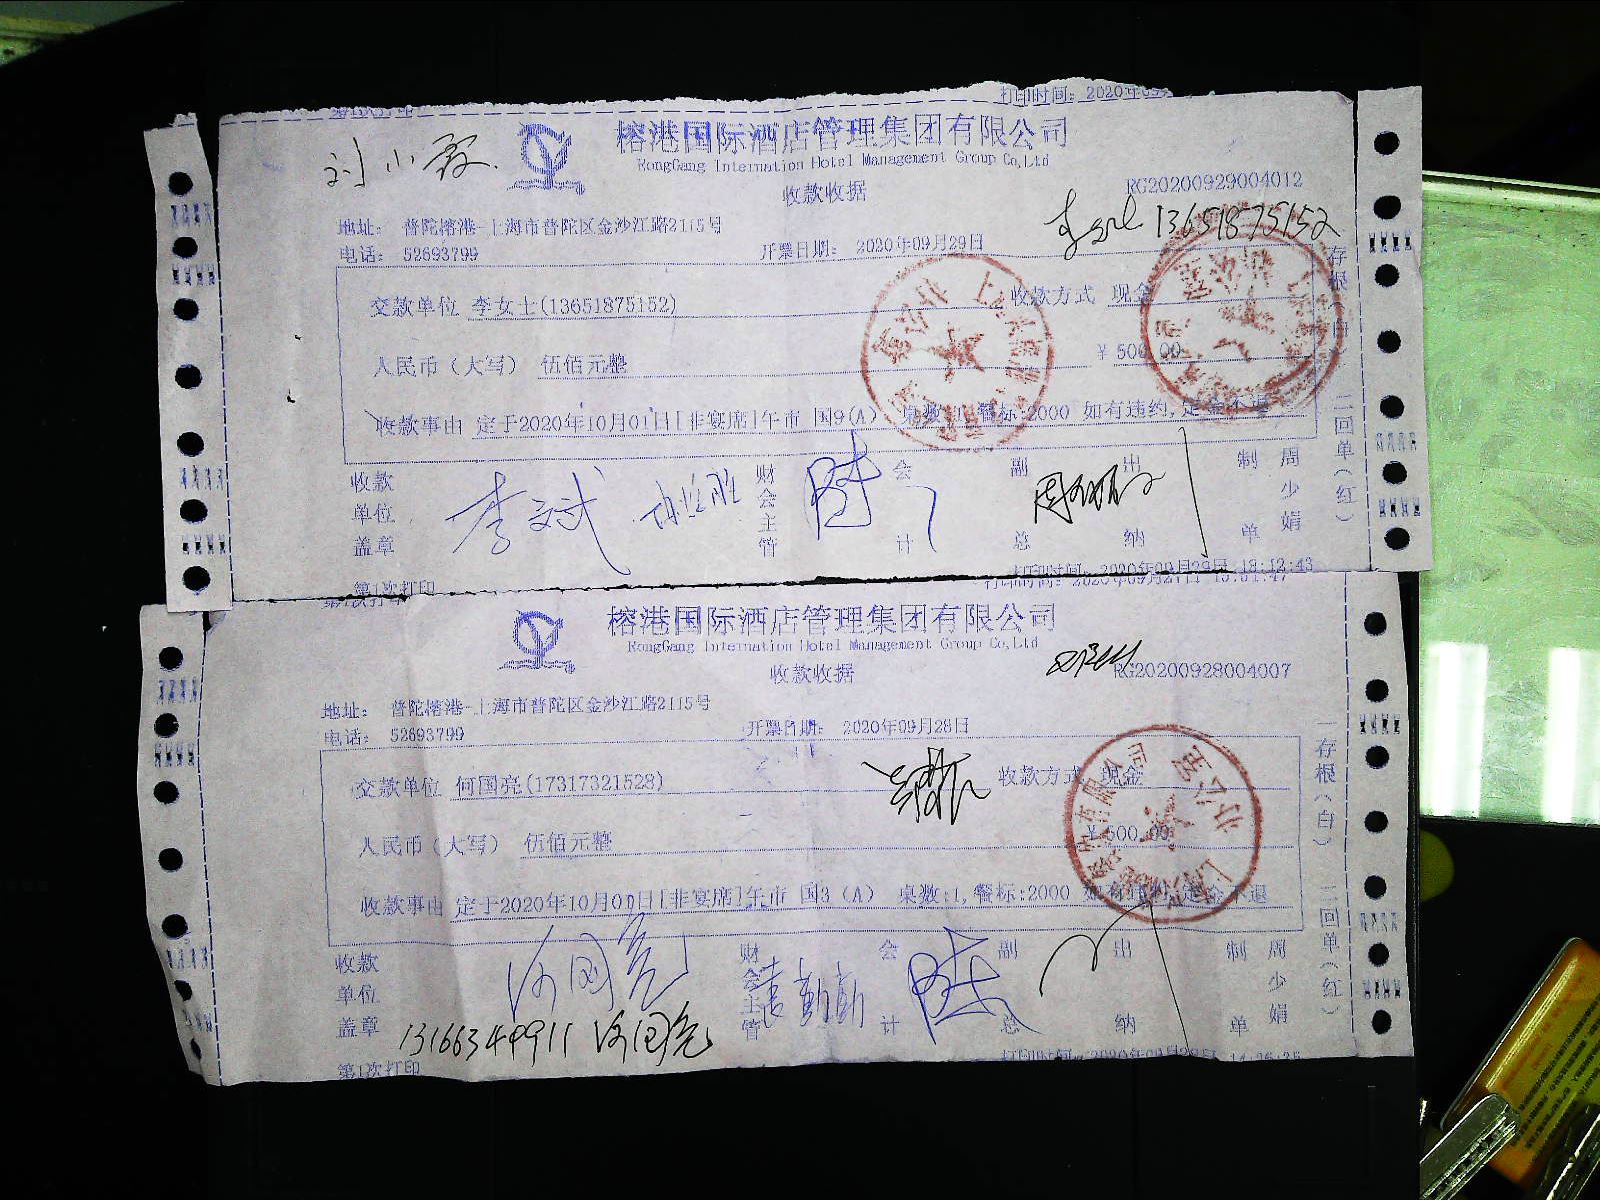 打印时间: 2020年09
刘小霞
榕港国际酒店管理集团有限公司
RongGang Internation Hotel Management Group Co,Ltd
收款收据
RG20200929004012
13651875152
地址: 普陀榕港-上海市普陀区金沙江路2115号
电话: 52693799
开票日期: 2020年09月29日
交款单位 李女士(13651875152)
收款方式 现金
人民币（大写） 伍佰元整
¥ 500.00
收款事由 定于2020年10月01日[非宴席]午市 国9(A) 桌数:1,餐标:2000 如有违约,定金不退
一存根（白） 二回单（红）
收款单位盖章
李斌
财会主管
会计
副总
出纳
制单
周少娟
第1次打印
打印时间: 2020年09月29日 18:12:43
打印时间: 2020年09月27日
榕港国际酒店管理集团有限公司
RongGang Internation Hotel Management Group Co,Ltd
收款收据
RG20200928004007
地址: 普陀榕港-上海市普陀区金沙江路2115号
电话: 52693799
开票日期: 2020年09月28日
交款单位 何国亮(17317321528)
收款方式 现金
人民币（大写） 伍佰元整
¥ 500.00
收款事由 定于2020年10月01日[非宴席]午市 国3 (A) 桌数:1,餐标:2000 如有违约,定金不退
一存根（白） 二回单（红）
收款单位盖章
何国亮
财会主管
会计
副总
出纳
制单
周少娟
13166349911 何国亮
第1次打印
打印时间: 2020年09月28日